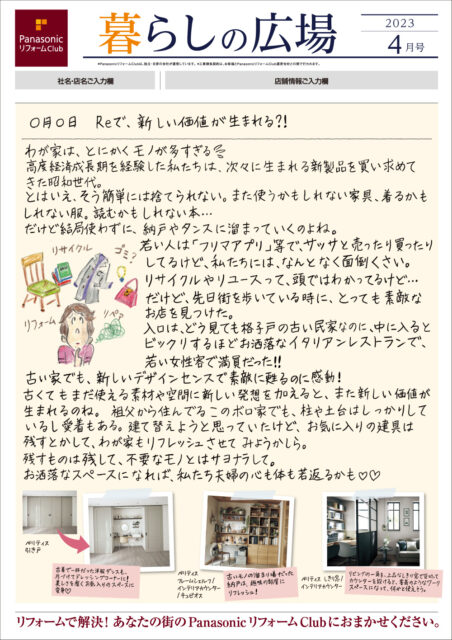 Panasonic
リフォームClub
暮らしの広場
2023
4月号
※PanasonicリフォームClubは、独立・自営の会社が運営しています。※工事請負契約は、お客様とPanasonicリフォームClub運営会社との間で行われます。
社名・店名ご入力欄
店舗情報ご入力欄
○月○日 Reで、新しい価値が生まれる?!
わが家は、とにかくモノが多すぎる
高度経済成長期を経験した私たちは、次々に生まれる新製品を買い求めて
きた昭和世代。
とはいえ、そう簡単には捨てられない。また使うかもしれない家具、着るかも
しれない服。読むかもしれない本…
だけど結局使わずに、納戸やタンスに溜まっていくのよね。
若い人は「フリマアプリ」等で、ササッと売ったり買ったり
してるけど、私たちには、なんとなく面倒くさい。
リサイクルやリユースって、頭ではわかってるけど…
だけど、先日街を歩いている時に、とっても素敵な
お店を見つけた。
入口は、どう見ても格子戸の古い民家なのに、中に入ると
ビックリするほどお洒落なイタリアンレストランで、
若い女性客で満員だった!!
リサイクル
ゴミ?
リフォーム
リペア
古い家でも、新しいデザインセンスで素敵に甦るのに感動!
古くてもまだ使える素材や空間に新しい発想を加えると、また新しい価値が
生まれるのね。 祖父から住んでるこのボロ家でも、柱や土台はしっかりして
いるし愛着もある。建て替えようと思っていたけど、お気に入りの建具は
残すとかして、わが家もリフレッシュさせてみようかしら。
残すものは残して、不要なモノとはサヨナラして。
お洒落なスペースになれば、私たち夫婦の心も体も若返るかも♡♡
ベリティス
引き戸
ベリティス
フレームシェルフ/
インテリアカウンター/
キュビオス
古いモノの溜まり場だった
納戸は、趣味の部屋に
リフレッシュ!
ベリティス しきり窓/
インテリアカウンター
リフォームで解決! あなたの街のPanasonic リフォーム Clubにおまかせください。